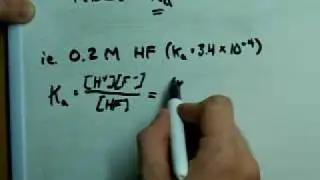 ie. 0.2 M HF (Ka = 3.4 × 10⁻⁴)
Ka = [H⁺][F⁻] / [HF] =